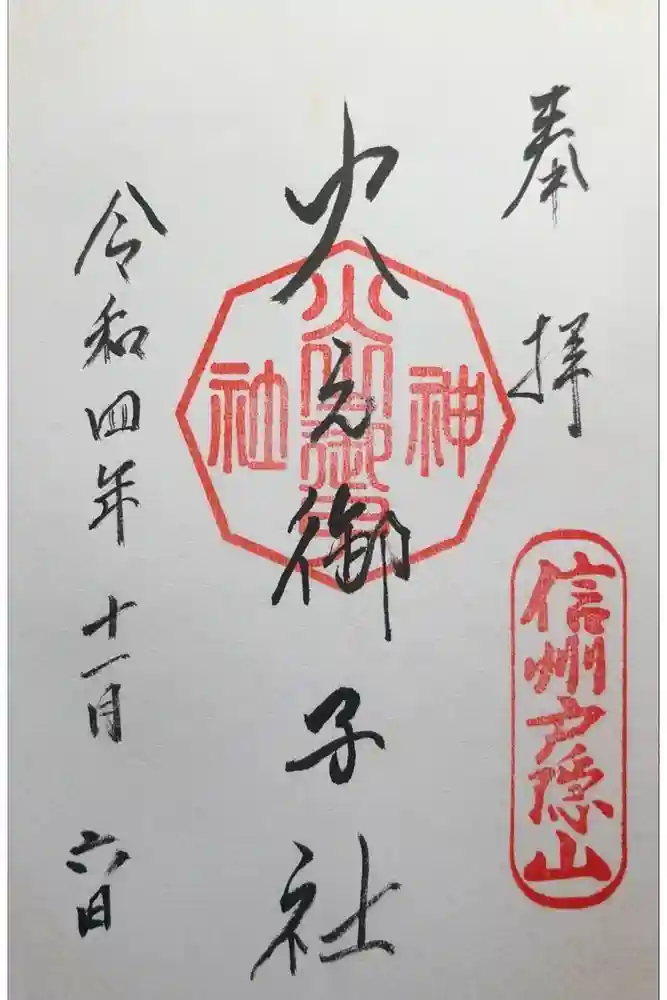 奉拝
信州戸隠山
火之御子社
神
社
令和四年十一月六日